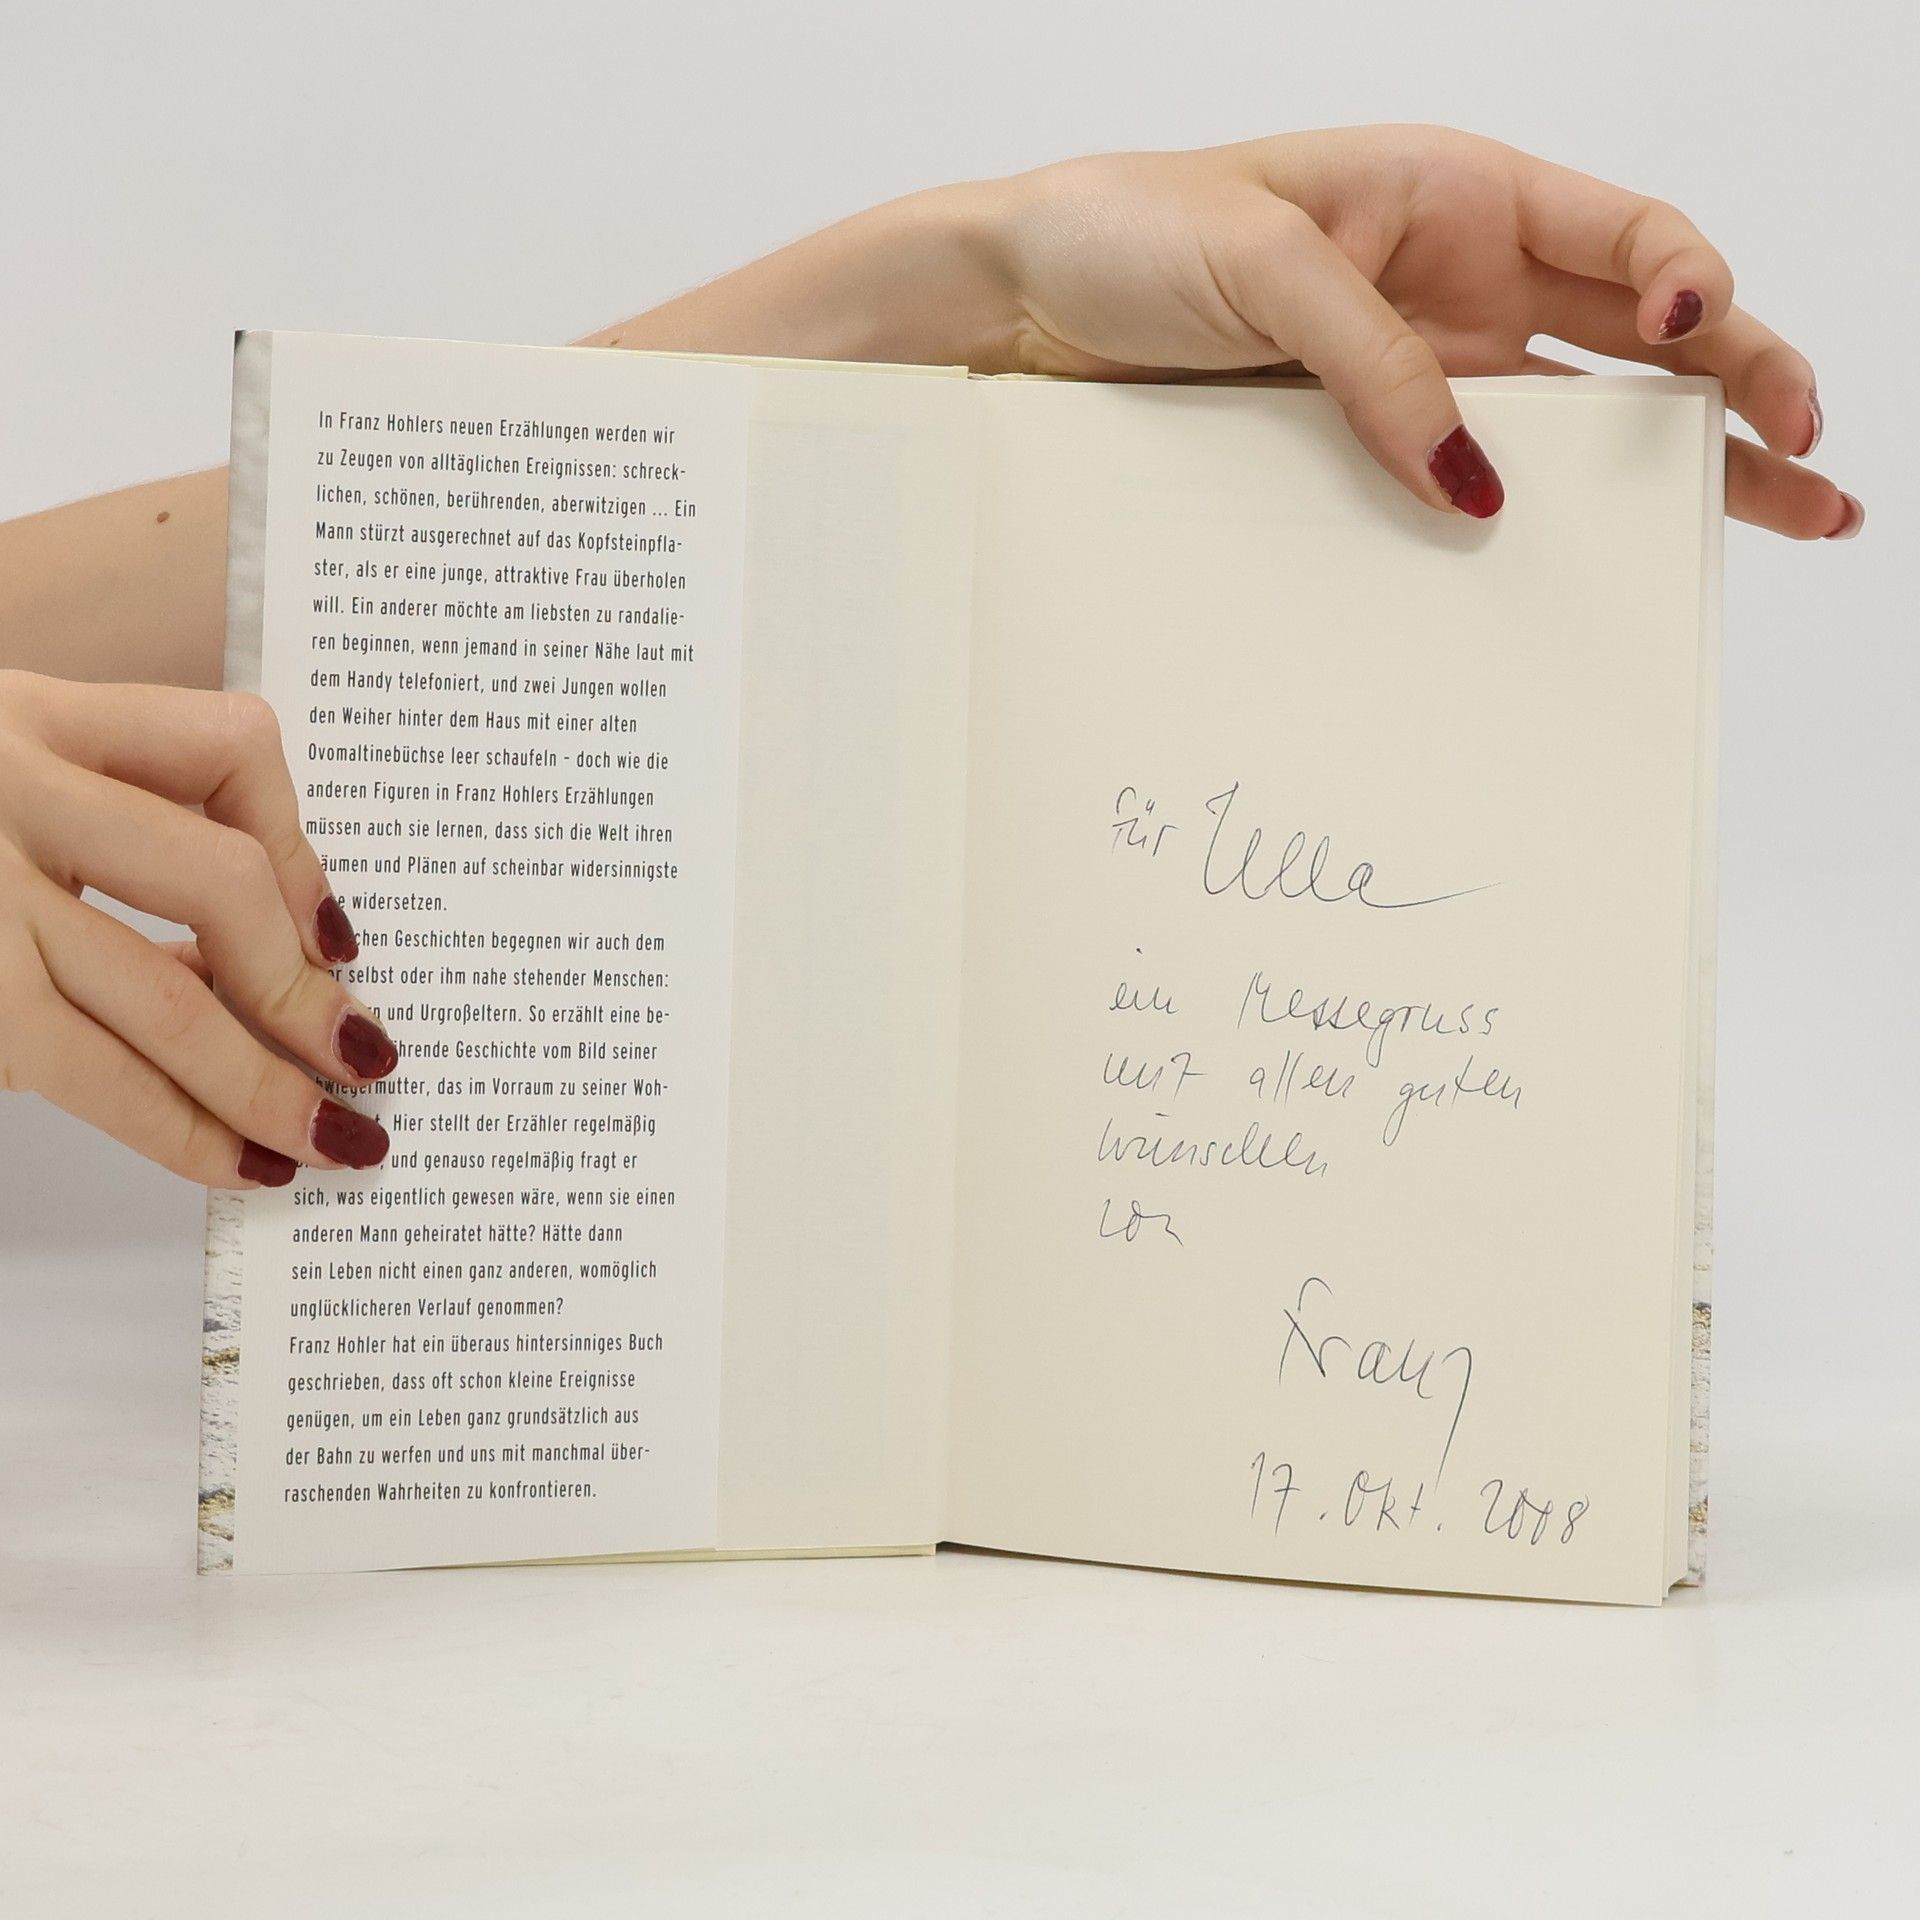 In Franz Hohlers neuen Erzählungen werden wir
zu Zeugen von alltäglichen Ereignissen: schreck-
lichen, schönen, berührenden, aberwitzigen ... Ein
Mann stürzt ausgerechnet auf das Kopfsteinpfla-
ster, als er eine junge, attraktive Frau überholen
will. Ein anderer möchte am liebsten zu randalie-
ren beginnen, wenn jemand in seiner Nähe laut mit
dem Handy telefoniert, und zwei Jungen wollen
den Weiher hinter dem Haus mit einer alten
Ovomaltinebüchse leer schaufeln - doch wie die
anderen Figuren in Franz Hohlers Erzählungen
müssen auch sie lernen, dass sich die Welt ihren
und Plänen auf scheinbar widersinnigste
widersetzen.
Geschichten begegnen wir auch dem
selbst oder ihm nahe stehender Menschen:
und Urgroßeltern. So erzählt eine be-
Geschichte vom Bild seiner
das im Vorraum zu seiner Woh-
Hier stellt der Erzähler regelmäßig
und genauso regelmäßig fragt er
sich, was eigentlich gewesen wäre, wenn sie einen
anderen Mann geheiratet hätte? Hätte dann
sein Leben nicht einen ganz anderen, womöglich
unglücklicheren Verlauf genommen?
Franz Hohler hat ein überaus hintersinniges Buch
geschrieben, dass oft schon kleine Ereignisse
genügen, um ein Leben ganz grundsätzlich aus
der Bahn zu werfen und uns mit manchmal über-
raschenden Wahrheiten zu konfrontieren.
für Ulla
ein Messegruss
mit allen guten
Wünschen
von
Franz
17. Okt. 2008